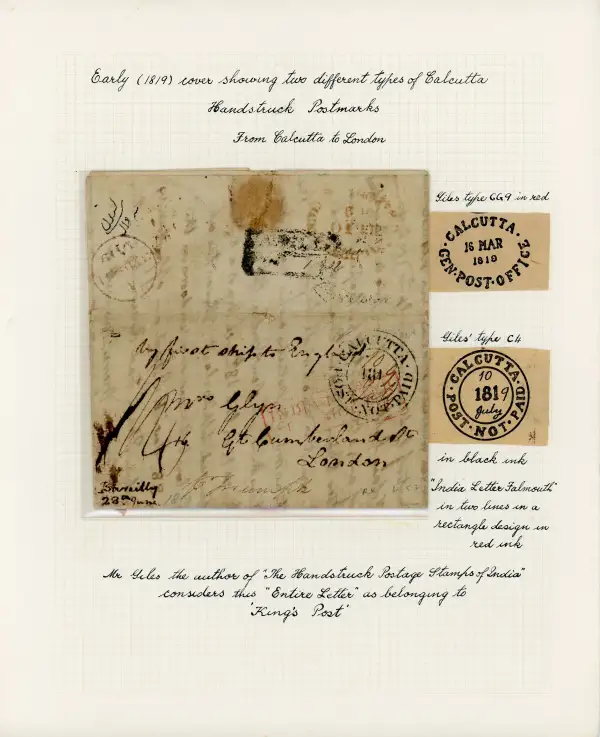 Early (1819) cover showing two different types of Calcutta
Handstruck Postmarks
From Calcutta to London
Giles type GG9 in red
CALCUTTA
16 MAR
1819
GEN·POST·OFFICE
Giles' type C4
CALCUTTA
10
1819
July
POST·NOT·PAID
in black ink
"India Letter Falmouth"
in two lines in a
rectangle design in
red ink
by first ship to England
CALCUTTA
181
POST·NOT·PAID
Mrs Glyn
Gt Cumberland St
London
Bareilly
23rd June
Mr Giles the author of "The Handstruck Postage Stamps of India"
considers this "Entire Letter" as belonging to
'King's Post'